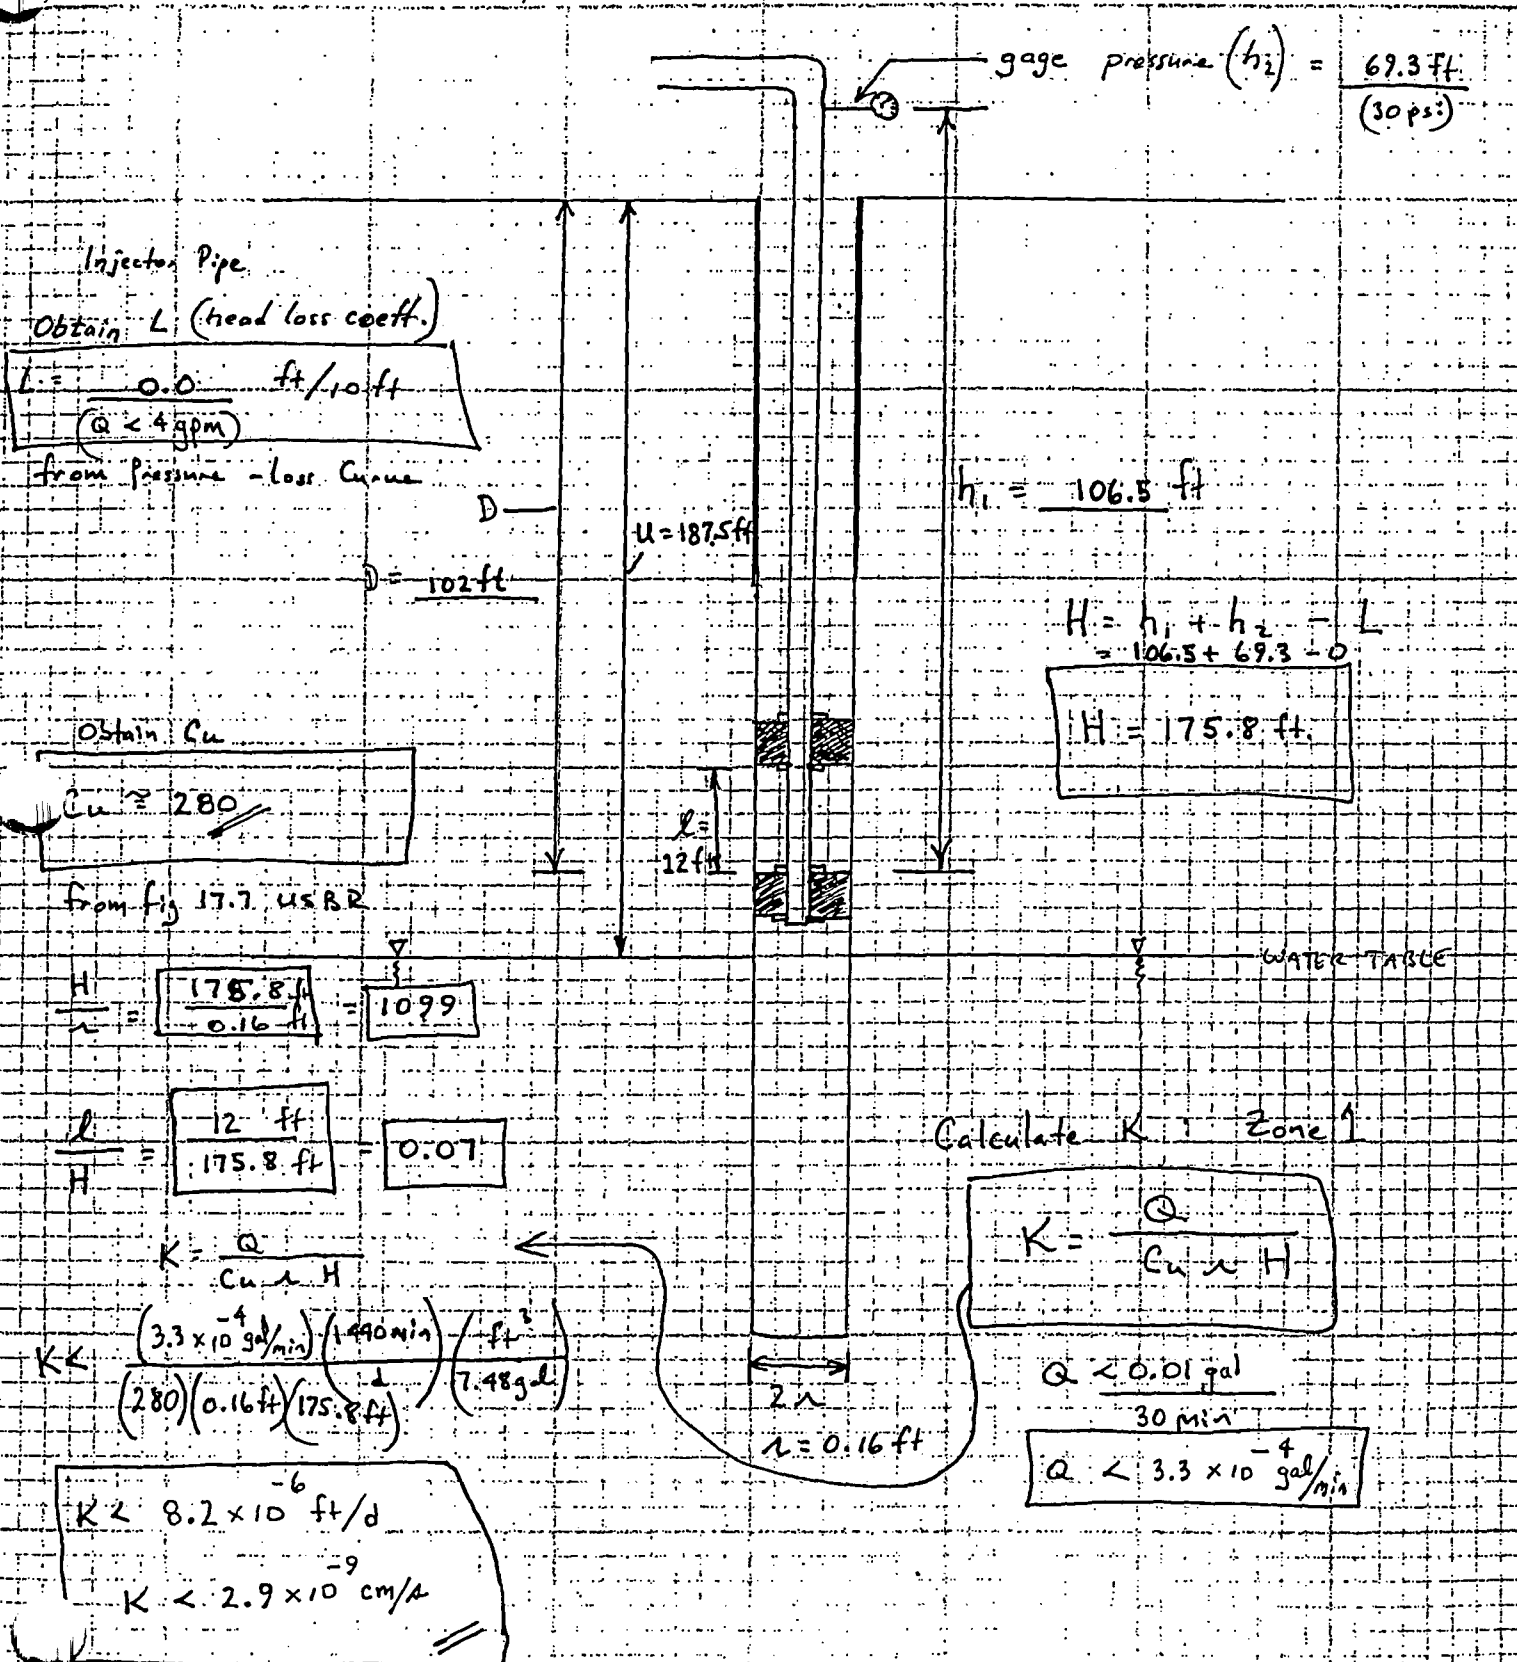 gage pressure (h₂) = 69.3 ft
(30 psi)
Injector Pipe
Obtain L (head loss coeff.)
L = 0.0 ft/10 ft
(Q < 4 gpm)
from Pressure-loss Curve
D
U = 187.5 ft
D = 102 ft
h₁ = 106.5 ft
H = h₁ + h₂ - L
= 106.5 + 69.3 - 0
H = 175.8 ft.
Obtain Cu
Cu ≈ 280
l =
12 ft
from fig 17.7 USBR
WATER TABLE
H/r = 175.8 ft / 0.16 ft = 1099
l/H = 12 ft / 175.8 ft = 0.07
Calculate K : Zone 1
K = Q / Cu r H
K = Q / Cu r H
K < (3.3 x 10⁻⁴ gal/min) (1440 min / d) (ft³ / 7.48 gal)
(280)(0.16 ft)(175.8 ft)
2r
r = 0.16 ft
Q < 0.01 gal
30 min
Q < 3.3 x 10⁻⁴ gal/min
K < 8.2 x 10⁻⁶ ft/d
K < 2.9 x 10⁻⁹ cm/s